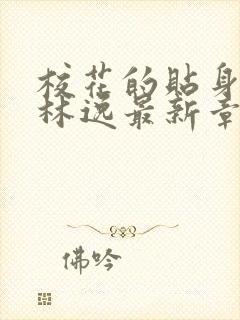 校花的贴身
林逸最新章
佛吟